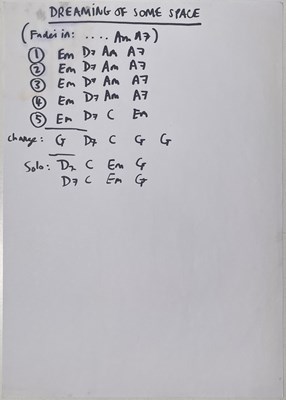 DREAMING OF SOME SPACE
(Fades in: .... Am A7)
① Em D7 Am A7
② Em D7 Am A7
③ Em D7 Am A7
④ Em D7 Am A7
⑤ Em D7 C Em
Change: G D7 C G G
Solo: D7 C Em G
D7 C Em G